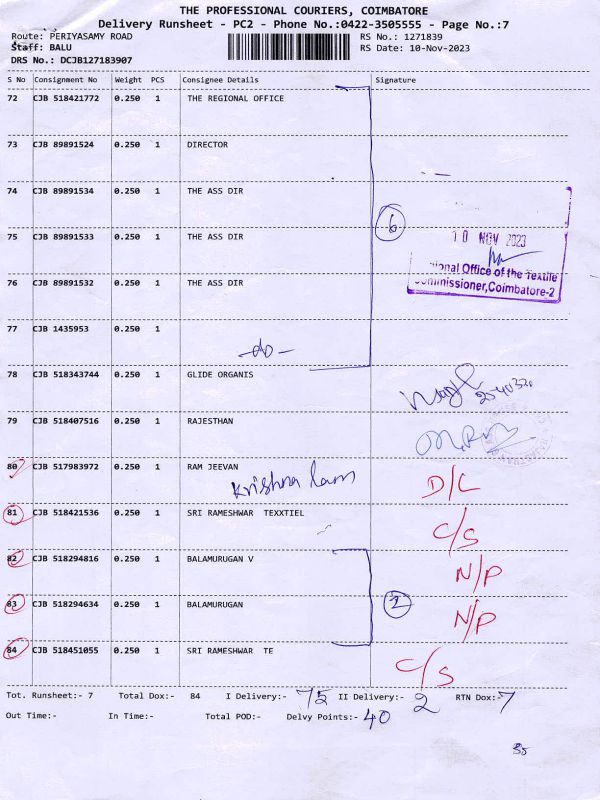 THE PROFESSIONAL COURIERS, COIMBATORE
Delivery Runsheet - PC2 - Phone No.:0422-3505555 - Page No.:7
Route: PERIYASAMY ROAD RS No.: 1271839
Staff: BALU RS Date: 10-Nov-2023
DRS No.: DCJB127183907
S No Consignment No Weight PCS Consignee Details Signature
72 CJB 518421772 0.250 1 THE REGIONAL OFFICE
73 CJB 89891524 0.250 1 DIRECTOR
74 CJB 89891534 0.250 1 THE ASS DIR
6
75 CJB 89891533 0.250 1 THE ASS DIR
10 NOV 2023
Office of the Textile
Commissioner, Coimbatore-2
76 CJB 89891532 0.250 1 THE ASS DIR
77 CJB 1435953 0.250 1
-do-
78 CJB 518343744 0.250 1 GLIDE ORGANIS
79 CJB 518407516 0.250 1 RAJESTHAN
80 CJB 517983972 0.250 1 RAM JEEVAN
Krishna D/L
81 CJB 518421536 0.250 1 SRI RAMESHWAR TEXXTIEL
C/S
82 CJB 518294816 0.250 1 BALAMURUGAN V
N/P
83 CJB 518294634 0.250 1 BALAMURUGAN 2
N/P
84 CJB 518451055 0.250 1 SRI RAMESHWAR TE
C/S
Tot. Runsheet:- 7 Total Dox:- 84 I Delivery:- 75 II Delivery:- 2 RTN Dox:- 7
Out Time:- In Time:- Total POD:- Delvy Points:- 40